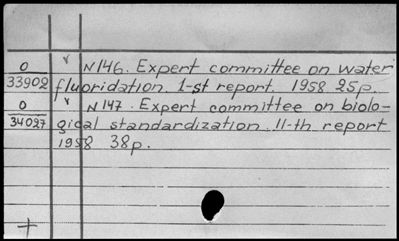 O √ N146. Expert committee on water
33902 fluoridation. 1-st report. 1958 25p.
O √ N147. Expert committee on biolo-
34027 gical standardization. 11-th report
1958 38p.
+